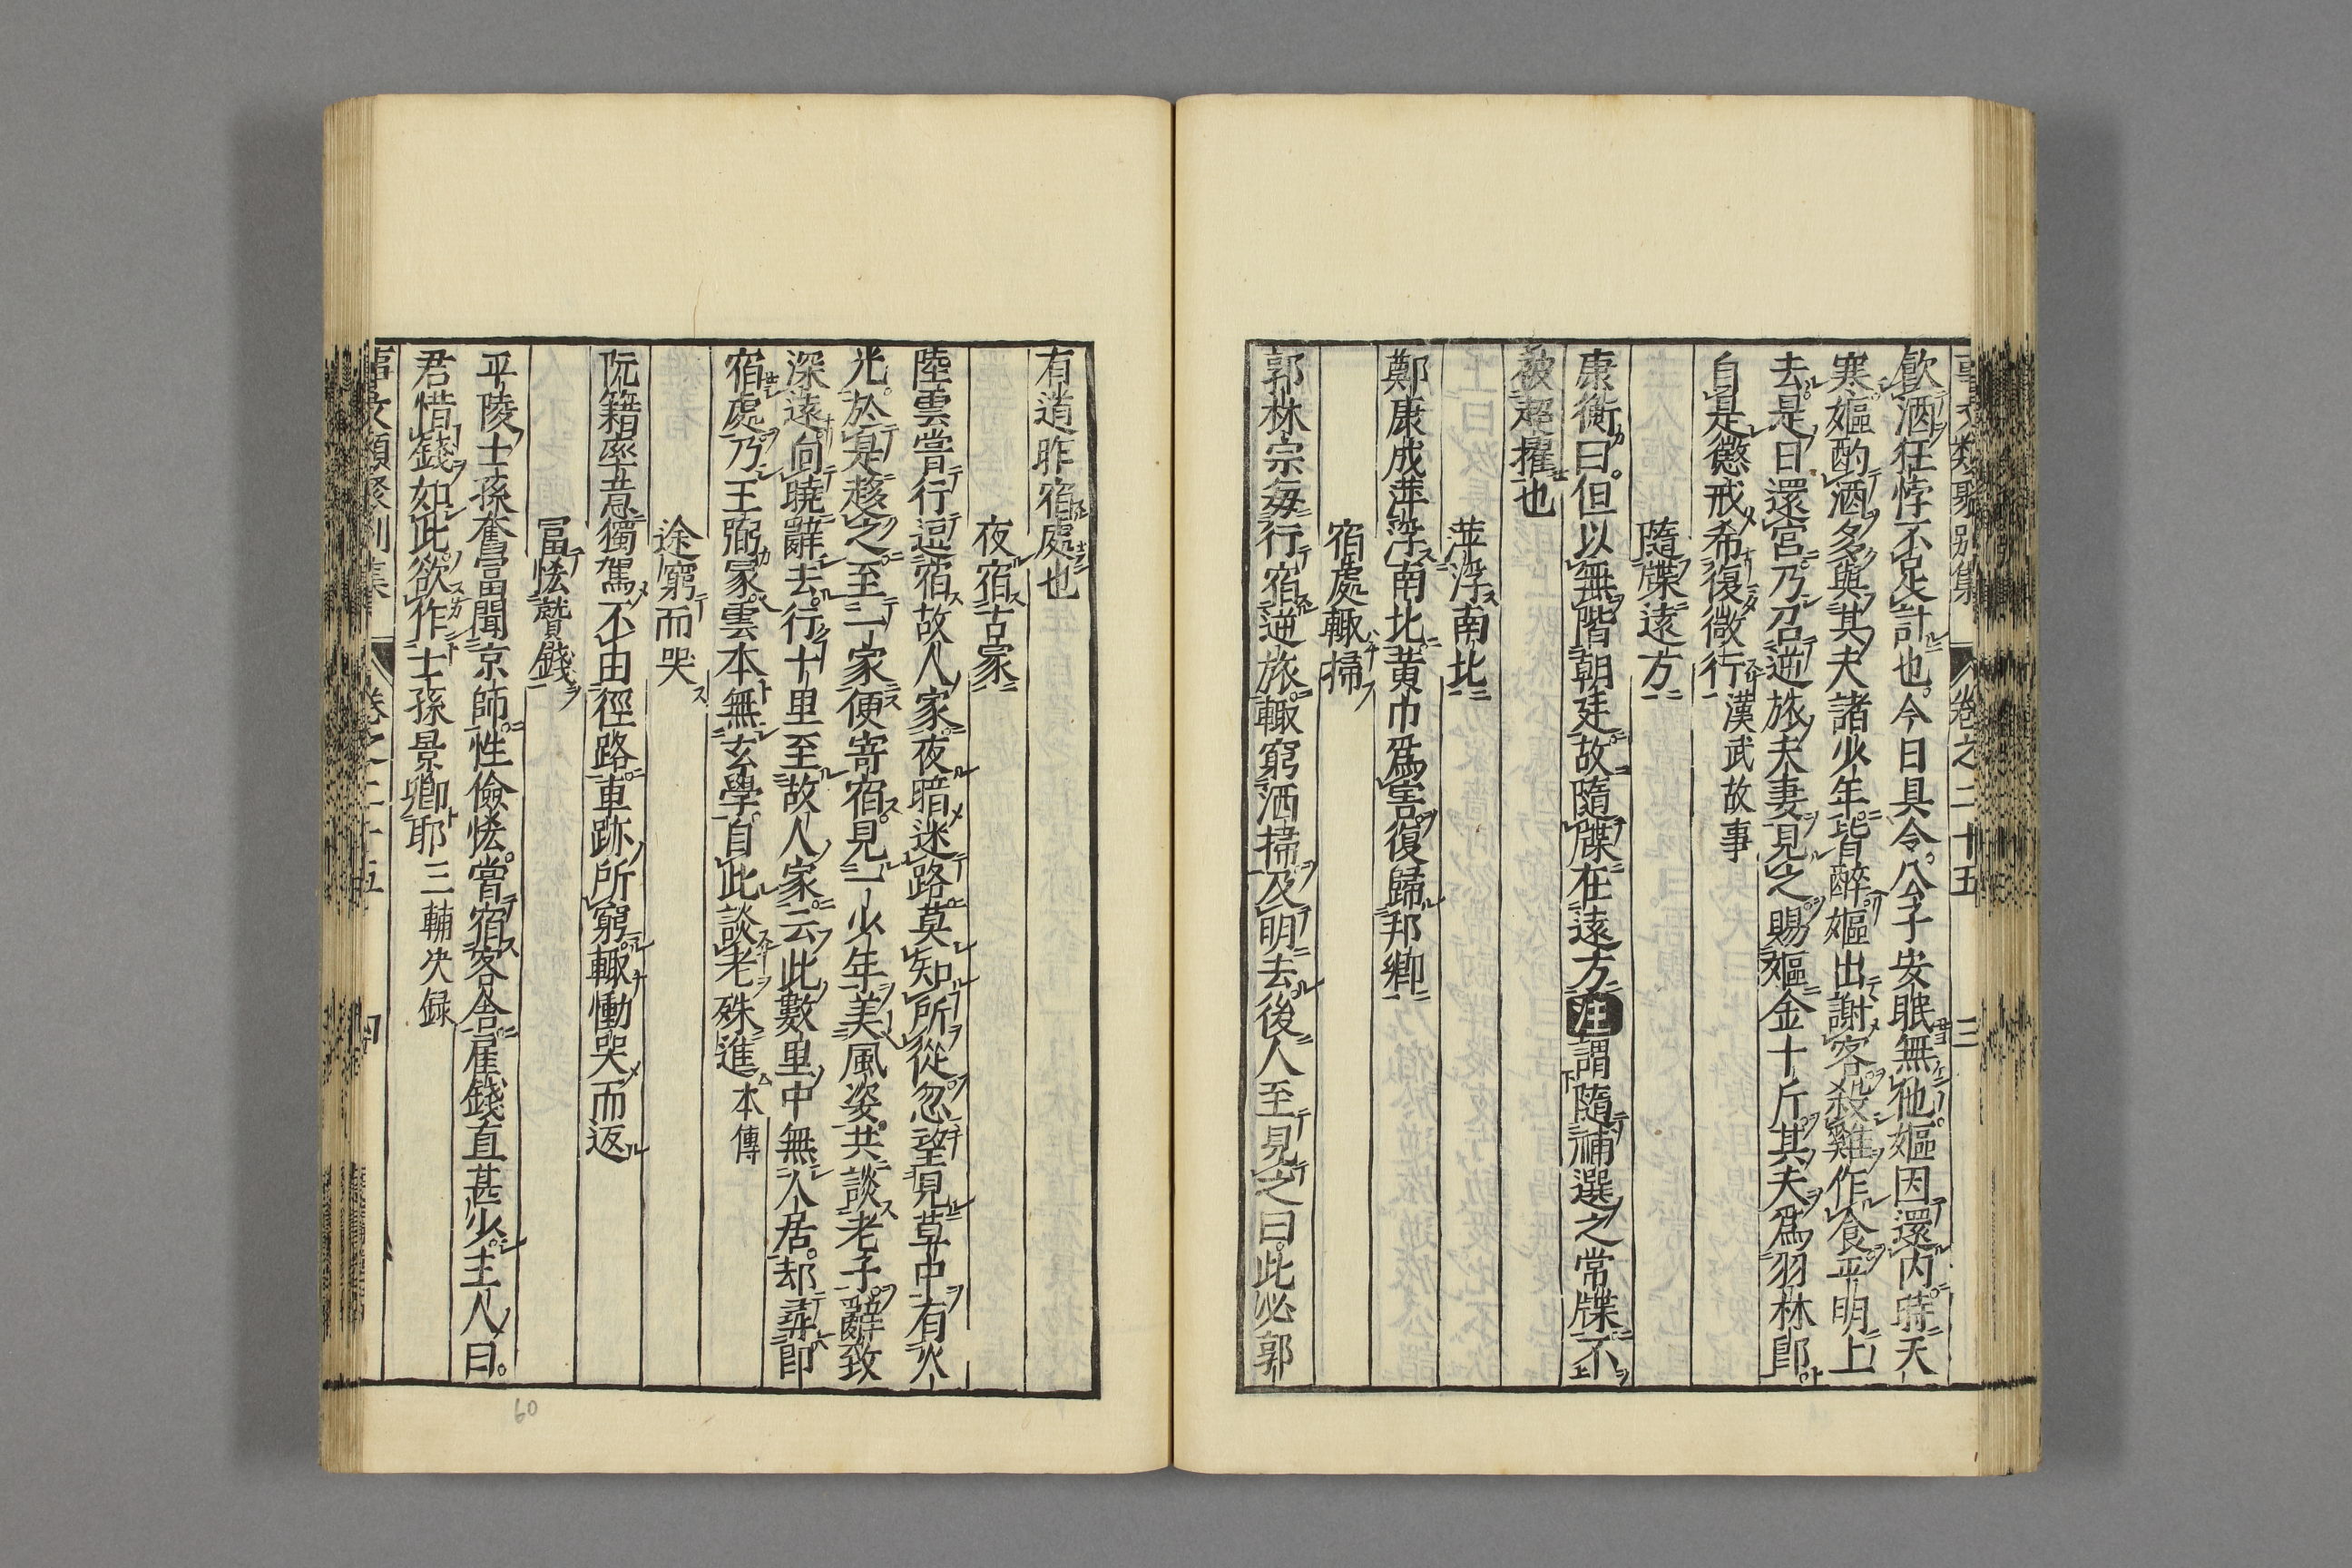 事文類聚別集 卷之二十五 三
飮酒狂悖不足計也今日具令公子安眠無他嫗因還内時天
寒嫗酌酒多與其夫諸少年皆醉嫗出謝客殺雞作食平明上
去是日還宮乃召逆旅夫妻見之賜嫗金十斤其夫爲羽林郎
自是懲戒希復微行漢武故事
隨牒遠方
康衡曰但以無階朝廷故隨牒在遠方注謂隨補選之常牒不
被超擢也
萍浮南北
鄭康成萍浮南北黃巾爲害復歸邦鄉
宿處輒掃
郭林宗每行宿逆旅輒窮洒掃及明去後人至見之曰此必郭
有道昨宿處也
夜宿古冢
陸雲嘗行逗宿故人家夜暗迷路莫知所從忽望見草中有火
光於是趍之至一家便寄宿見一少年美風姿共談老子辭致
深遠向曉辭去行十里至故人家云此數里中無人居却尋昨
宿處乃王弼冢雲本無玄學自此談老殊進本傳
途窮而哭
阮籍率意獨駕不由徑路車跡所窮輒慟哭而返
富恡贊錢
平陵士孫奮富聞京師性儉恡嘗宿客舍雇錢直甚少主人曰
君惜錢如此欲作士孫景卿耶三輔决録
事文類聚別集 卷之二十五 四
60